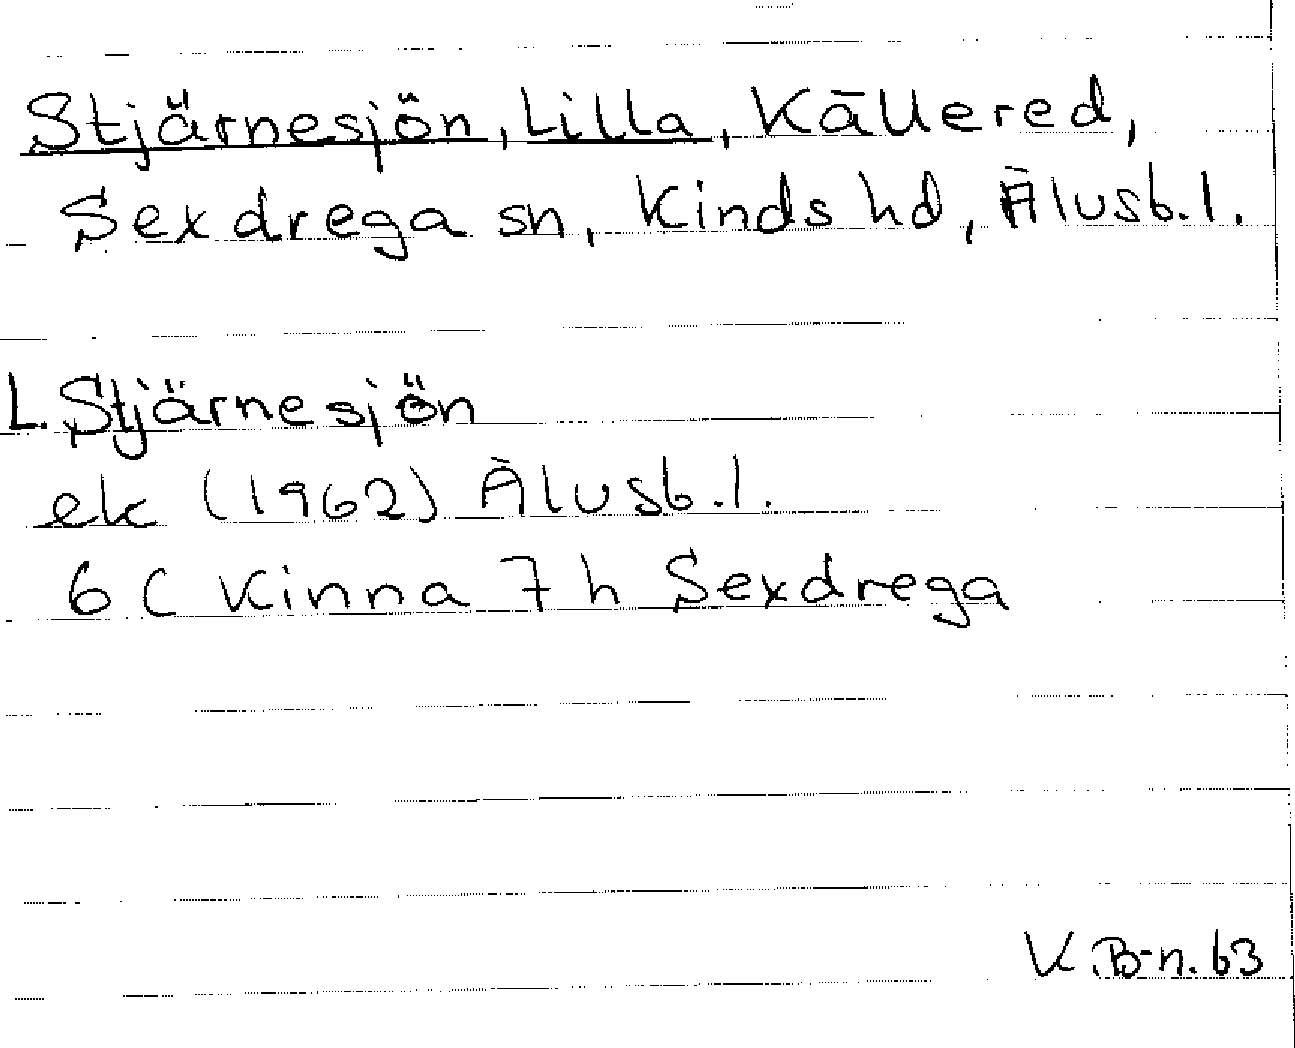 Stjärnesjön, Lilla, Källered,
Sexdrega sn, Kinds hd, Älvsb.l.
L. Stjärnesjön
ek (1962) Älvsb.l.
6 C Kinna 7 h Sexdrega
K B-n. 63